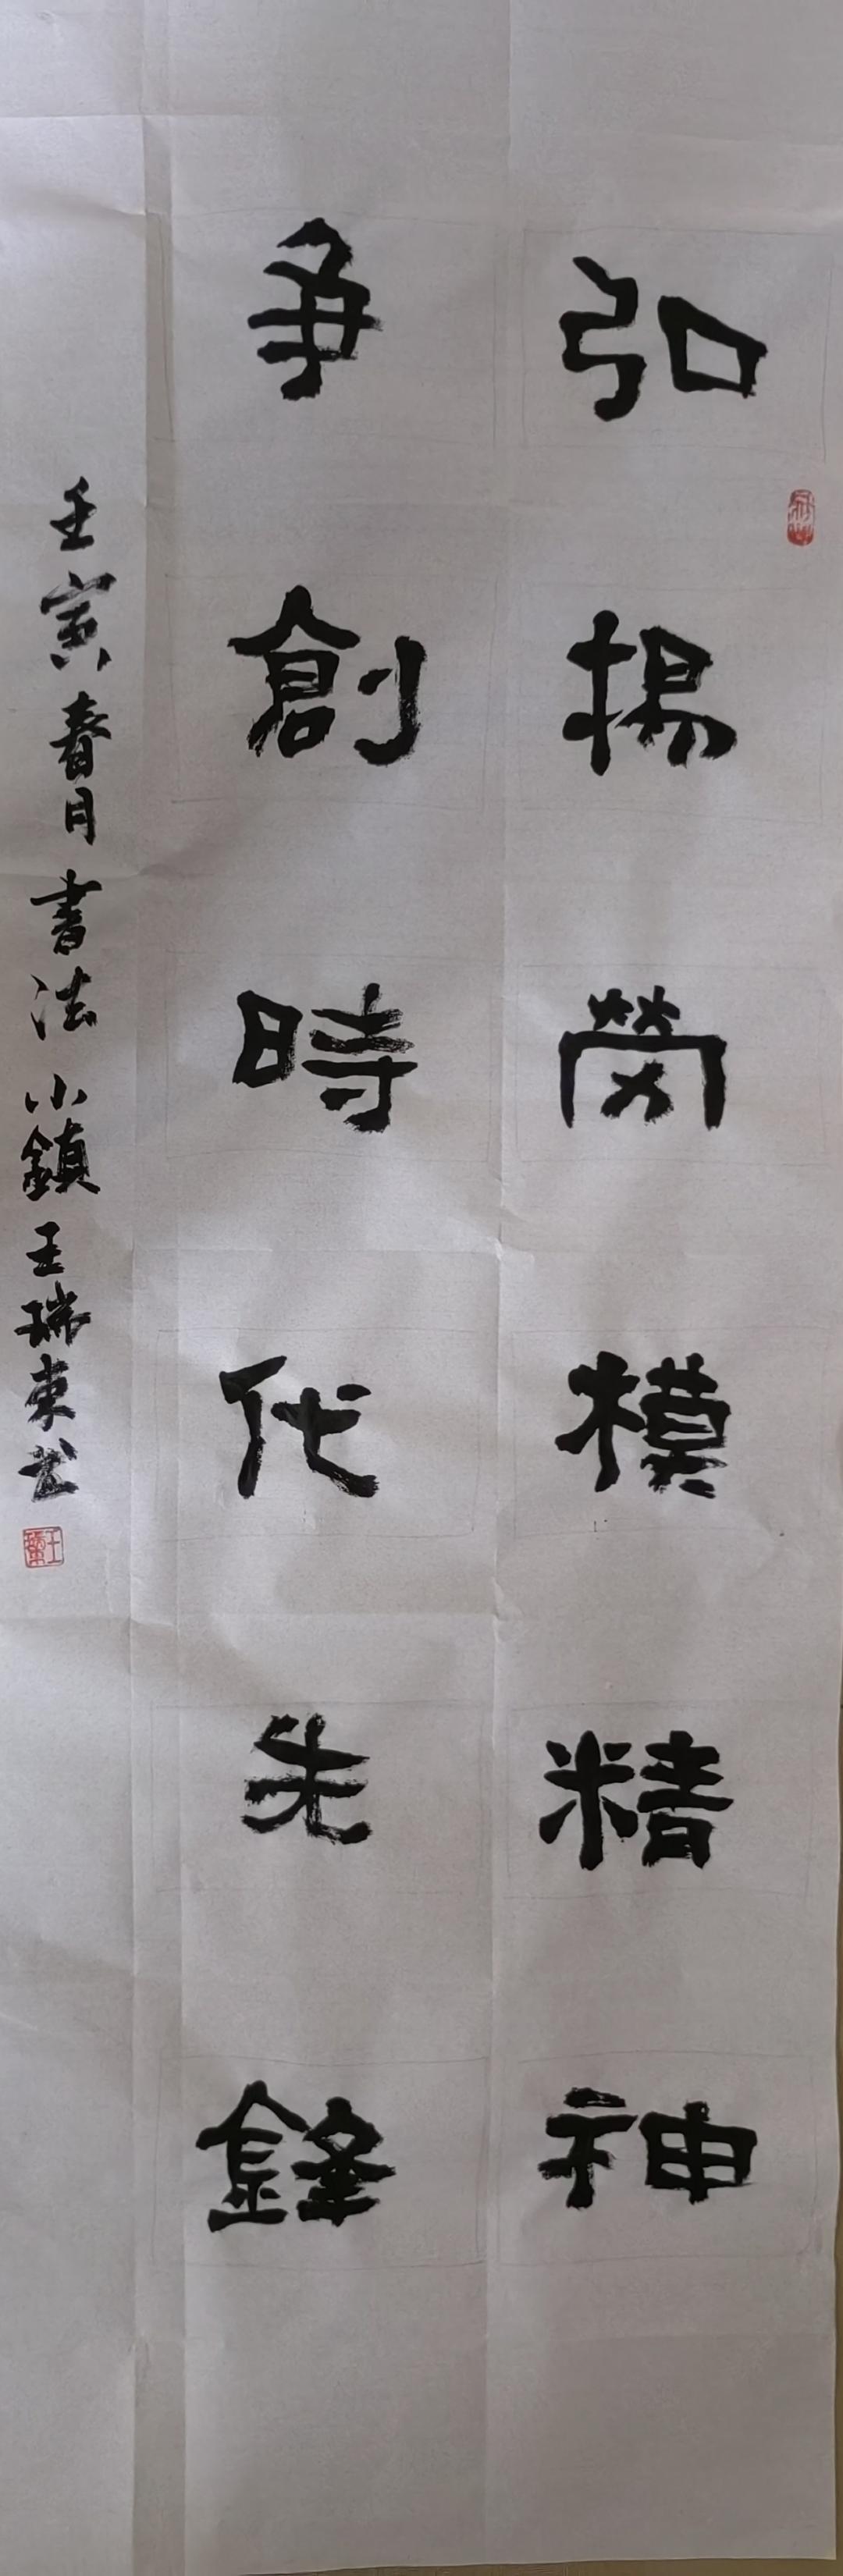 弘揚勞模精神
爭創時代先鋒
壬寅春月書法小鎮王瑞東书